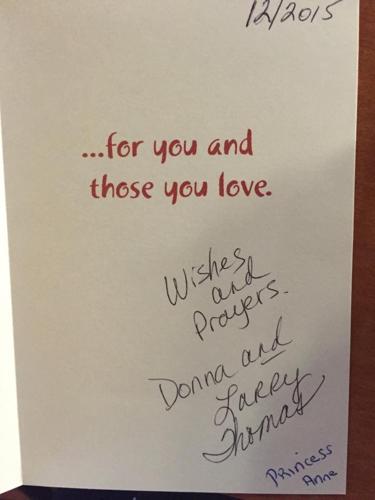 12/2015
...for you and
those you love.
Wishes
and
Prayers.
Donna and
Larry
Thomas
Princess
Anne